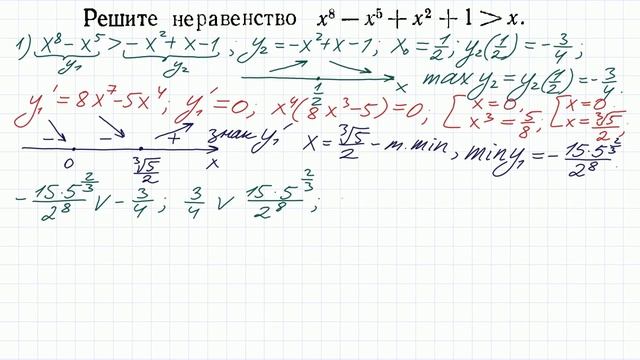 Решите неравенство x⁸ − x⁵ + x² + 1 > x.
1) x⁸ − x⁵ > −x² + x − 1 ; y₂ = −x² + x − 1; x₀ = 1/2; y₂(1/2) = −3/4;
y₁ y₂ 1/2 x max y₂ = y₂(1/2) = −3/4
y₁′ = 8x⁷ − 5x⁴; y₁′ = 0; x⁴(8x³ − 5) = 0; [x = 0, x³ = 5/8; [x = 0, x = ∛5/2;
− − + знак y₁′ x = ∛5/2 − т. min, min y₁ = −15·5^(2/3)/2⁸
0 ∛5/2 x
−15·5^(2/3)/2⁸ ∨ −3/4 ; 3/4 ∨ 15·5^(2/3)/2⁸ ;